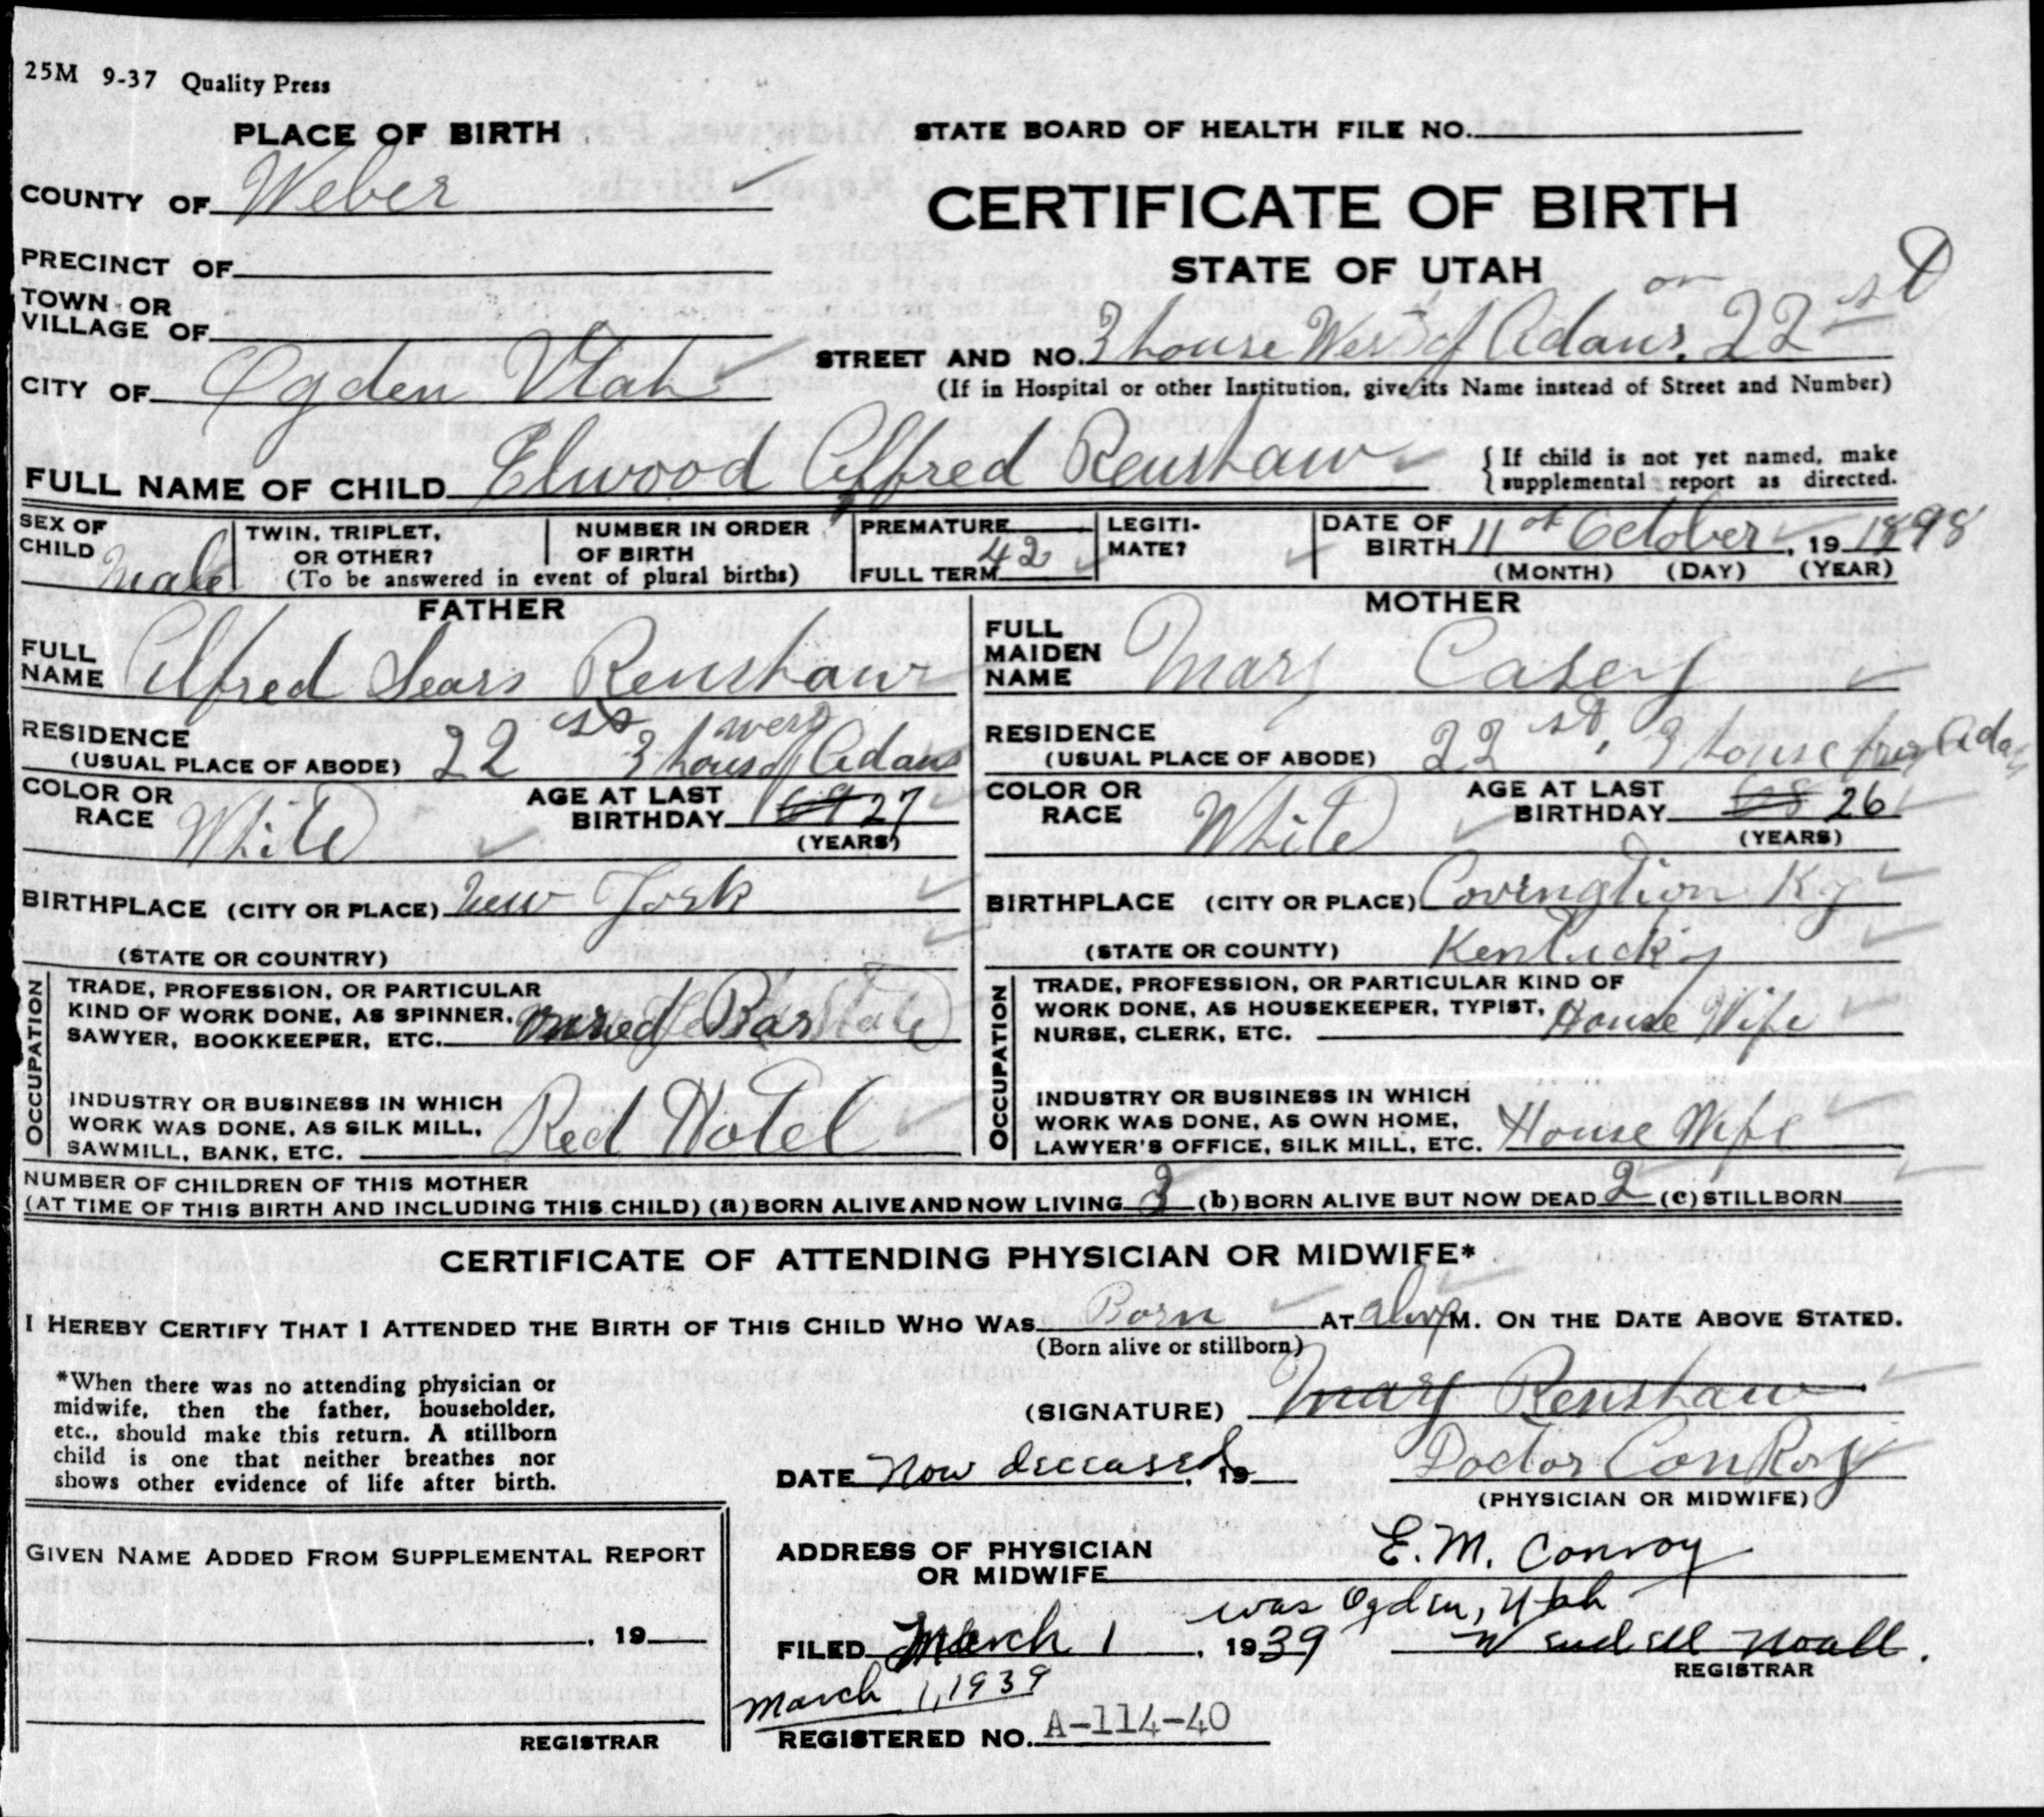 25M 9-37 Quality Press
PLACE OF BIRTH
STATE BOARD OF HEALTH FILE NO.
COUNTY OF Weber
CERTIFICATE OF BIRTH
PRECINCT OF
STATE OF UTAH
TOWN OR
VILLAGE OF
on
STREET AND NO. 3 house West of Adams. 22 st
CITY OF Ogden Utah
(If in Hospital or other Institution, give its Name instead of Street and Number)
FULL NAME OF CHILD Elwood Alfred Renshaw
{ If child is not yet named, make
supplemental report as directed.
SEX OF CHILD Male
TWIN, TRIPLET, OR OTHER?
NUMBER IN ORDER OF BIRTH
(To be answered in event of plural births)
PREMATURE
FULL TERM 42
LEGITI-
MATE?
DATE OF BIRTH 11 of October, 19 1898
(MONTH) (DAY) (YEAR)
FATHER
FULL NAME Alfred Sears Renshaw
RESIDENCE
(USUAL PLACE OF ABODE) 22 st 3 house west of Adams
COLOR OR RACE White
AGE AT LAST BIRTHDAY 69 27
(YEARS)
BIRTHPLACE (CITY OR PLACE) New York
(STATE OR COUNTRY)
OCCUPATION
TRADE, PROFESSION, OR PARTICULAR
KIND OF WORK DONE, AS SPINNER,
SAWYER, BOOKKEEPER, ETC. Bar
INDUSTRY OR BUSINESS IN WHICH
WORK WAS DONE, AS SILK MILL,
SAWMILL, BANK, ETC. Red Hotel
MOTHER
FULL MAIDEN NAME Mary Casey
RESIDENCE
(USUAL PLACE OF ABODE) 22 st, 3 house from Adams
COLOR OR RACE White
AGE AT LAST BIRTHDAY 68 26
(YEARS)
BIRTHPLACE (CITY OR PLACE) Covingtion Ky
(STATE OR COUNTY) Kentucky
OCCUPATION
TRADE, PROFESSION, OR PARTICULAR KIND OF
WORK DONE, AS HOUSEKEEPER, TYPIST,
NURSE, CLERK, ETC. House Wife
INDUSTRY OR BUSINESS IN WHICH
WORK WAS DONE, AS OWN HOME,
LAWYER'S OFFICE, SILK MILL, ETC. House Wife
NUMBER OF CHILDREN OF THIS MOTHER
(AT TIME OF THIS BIRTH AND INCLUDING THIS CHILD) (a) BORN ALIVE AND NOW LIVING 3 (b) BORN ALIVE BUT NOW DEAD 2 (c) STILLBORN
CERTIFICATE OF ATTENDING PHYSICIAN OR MIDWIFE*
I HEREBY CERTIFY THAT I ATTENDED THE BIRTH OF THIS CHILD WHO WAS Born AT M. ON THE DATE ABOVE STATED.
(Born alive or stillborn)
*When there was no attending physician or
midwife, then the father, householder,
etc., should make this return. A stillborn
child is one that neither breathes nor
shows other evidence of life after birth.
(SIGNATURE) Mary Renshaw
DATE Now deceased, 19
Doctor ConRoy
(PHYSICIAN OR MIDWIFE)
GIVEN NAME ADDED FROM SUPPLEMENTAL REPORT
, 19
REGISTRAR
ADDRESS OF PHYSICIAN
OR MIDWIFE E. M. Conroy
was Ogden, Utah
FILED March 1, 1939 Wendell Noall.
REGISTRAR
March 1, 1939
REGISTERED NO. A-114-40